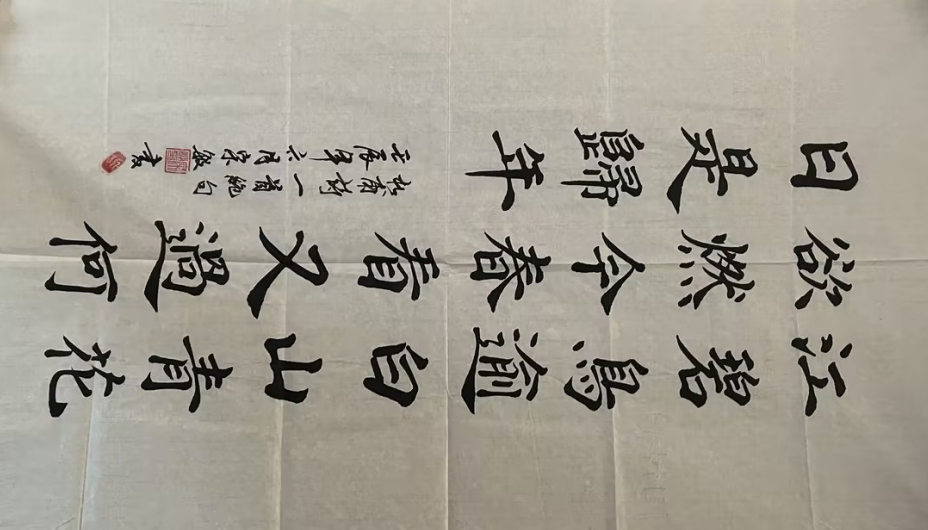 江碧鳥逾白山青花
欲燃今春看又過何
日是歸年
杜甫詩一首絕句
壬辰年六月敏書